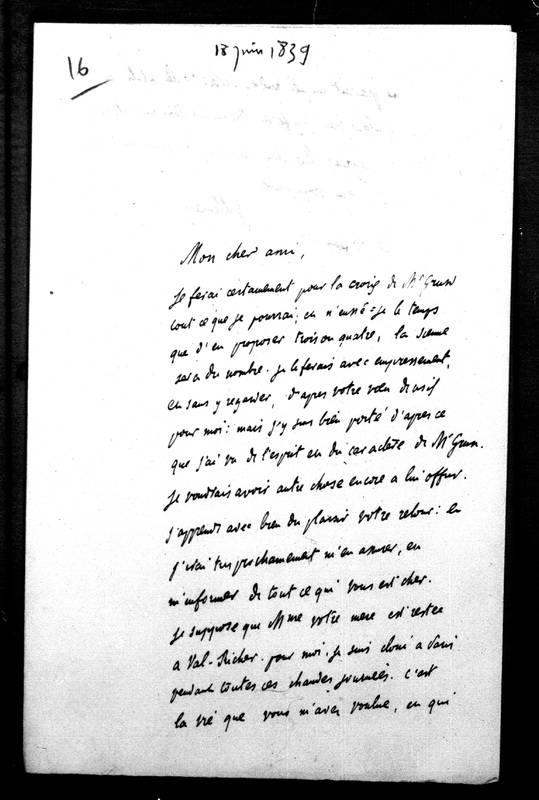 18 juin 1839
16
Mon cher ami,
Je ferai certainement pour la croix de Mr Grun
tout ce que je pourrai; en n'eussé-je le temps
que d'en proposer trois ou quatre, la sienne
sera du nombre. Je le ferais avec empressement,
en sans y regarder, d'après votre vœu décisif
pour moi: mais j'y suis bien porté d'après ce
que j'ai vu de l'esprit en du caractère de Mr Grun.
Je voudrais avoir autre chose encore a lui offrir.
J'apprends avec bien du plaisir votre retour: en
j'irai très prochainement m'en assurer, en
m'informer de tout ce qui vous est cher.
Je suppose que Mme votre mere est restée
a Val-Richer. pour moi, je suis cloué a Paris
pendant toutes ces chaudes journées. c'est
la vie que vous m'avez voulue, en qui